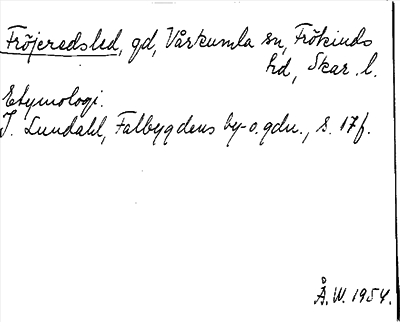 Fröjeredsled, gd, Vårkumla sn, Frökinds
hd, Skar. l.
Etymologi.
I. Lundahl, Falbygdens by- o. gdn., s. 17 f.
Å. W. 1954.